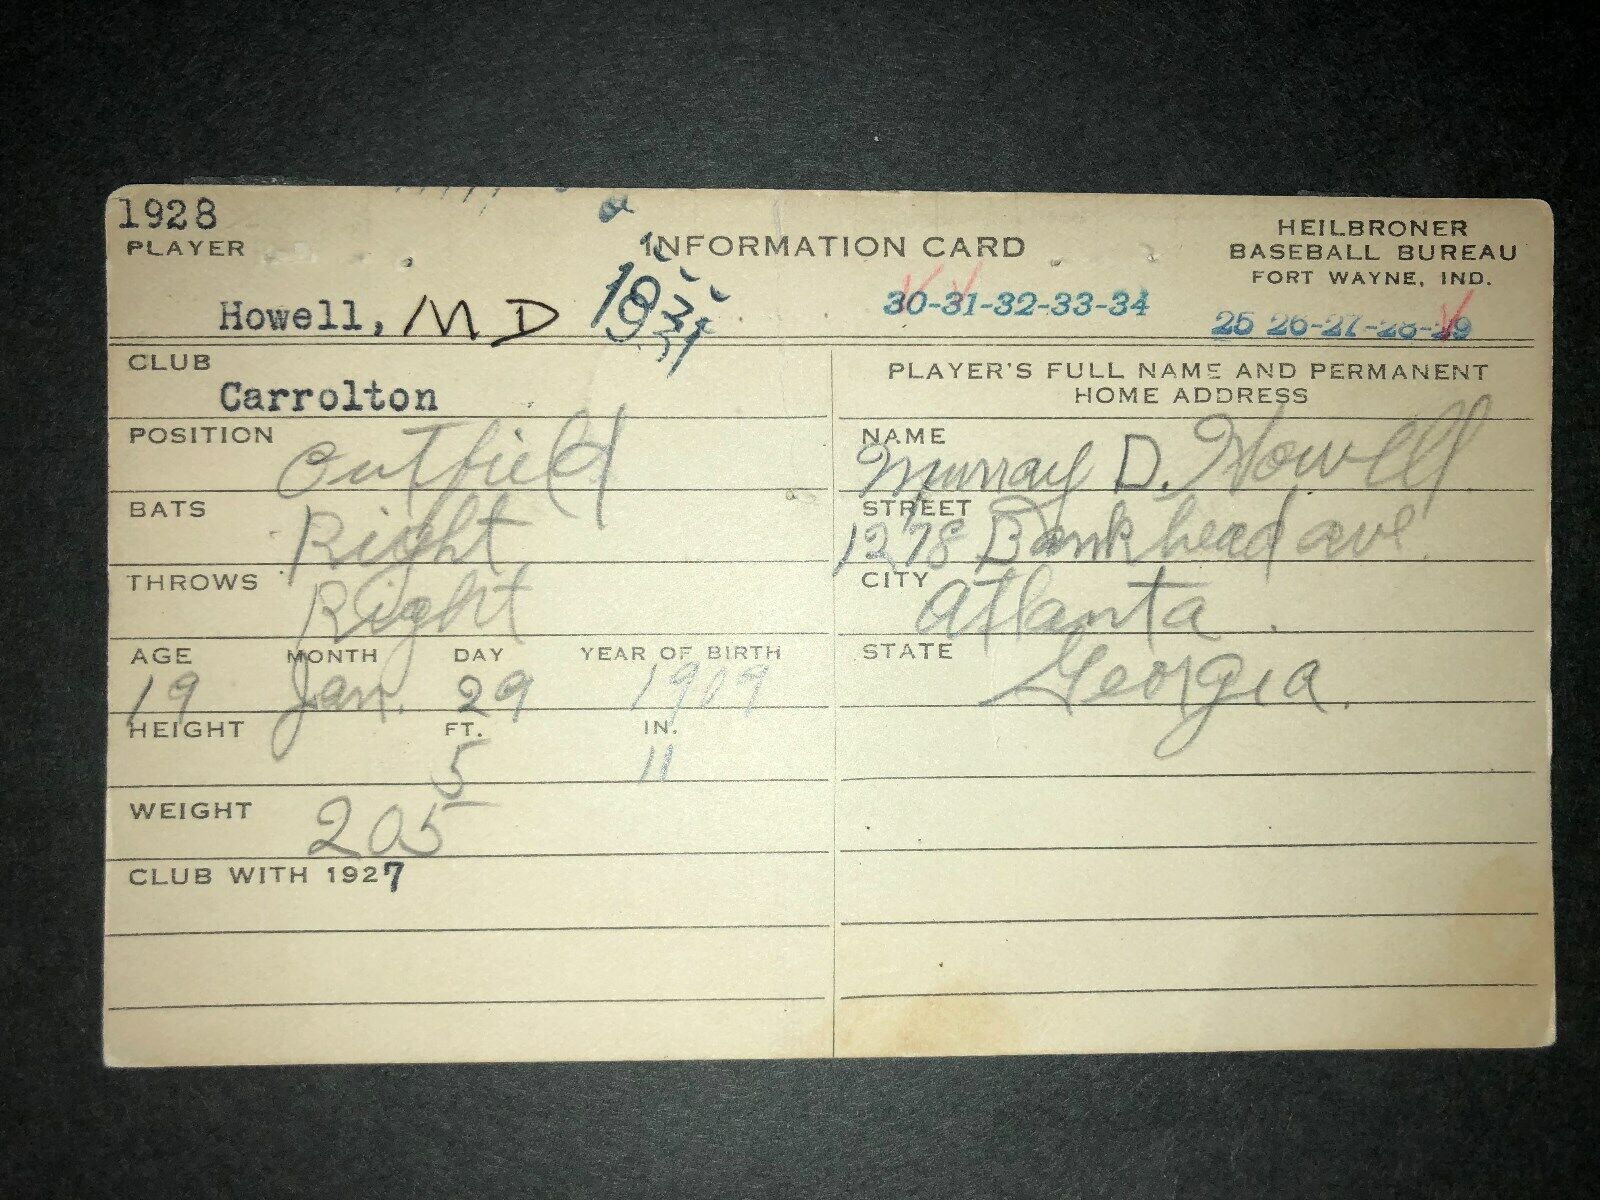 1928
PLAYER
INFORMATION CARD
HEILBRONER
BASEBALL BUREAU
FORT WAYNE, IND.
Howell, M D
30-31-32-33-34
25 26-27-28-29
CLUB
Carrolton
PLAYER'S FULL NAME AND PERMANENT
HOME ADDRESS
POSITION Outfield
NAME Murray D. Howell
BATS Right
STREET 1278 Bankhead ave.
THROWS Right
CITY Atlanta.
AGE MONTH DAY YEAR OF BIRTH
19 Jan. 29 1909
STATE Georgia.
HEIGHT FT. IN.
5 11
WEIGHT 205
CLUB WITH 1927